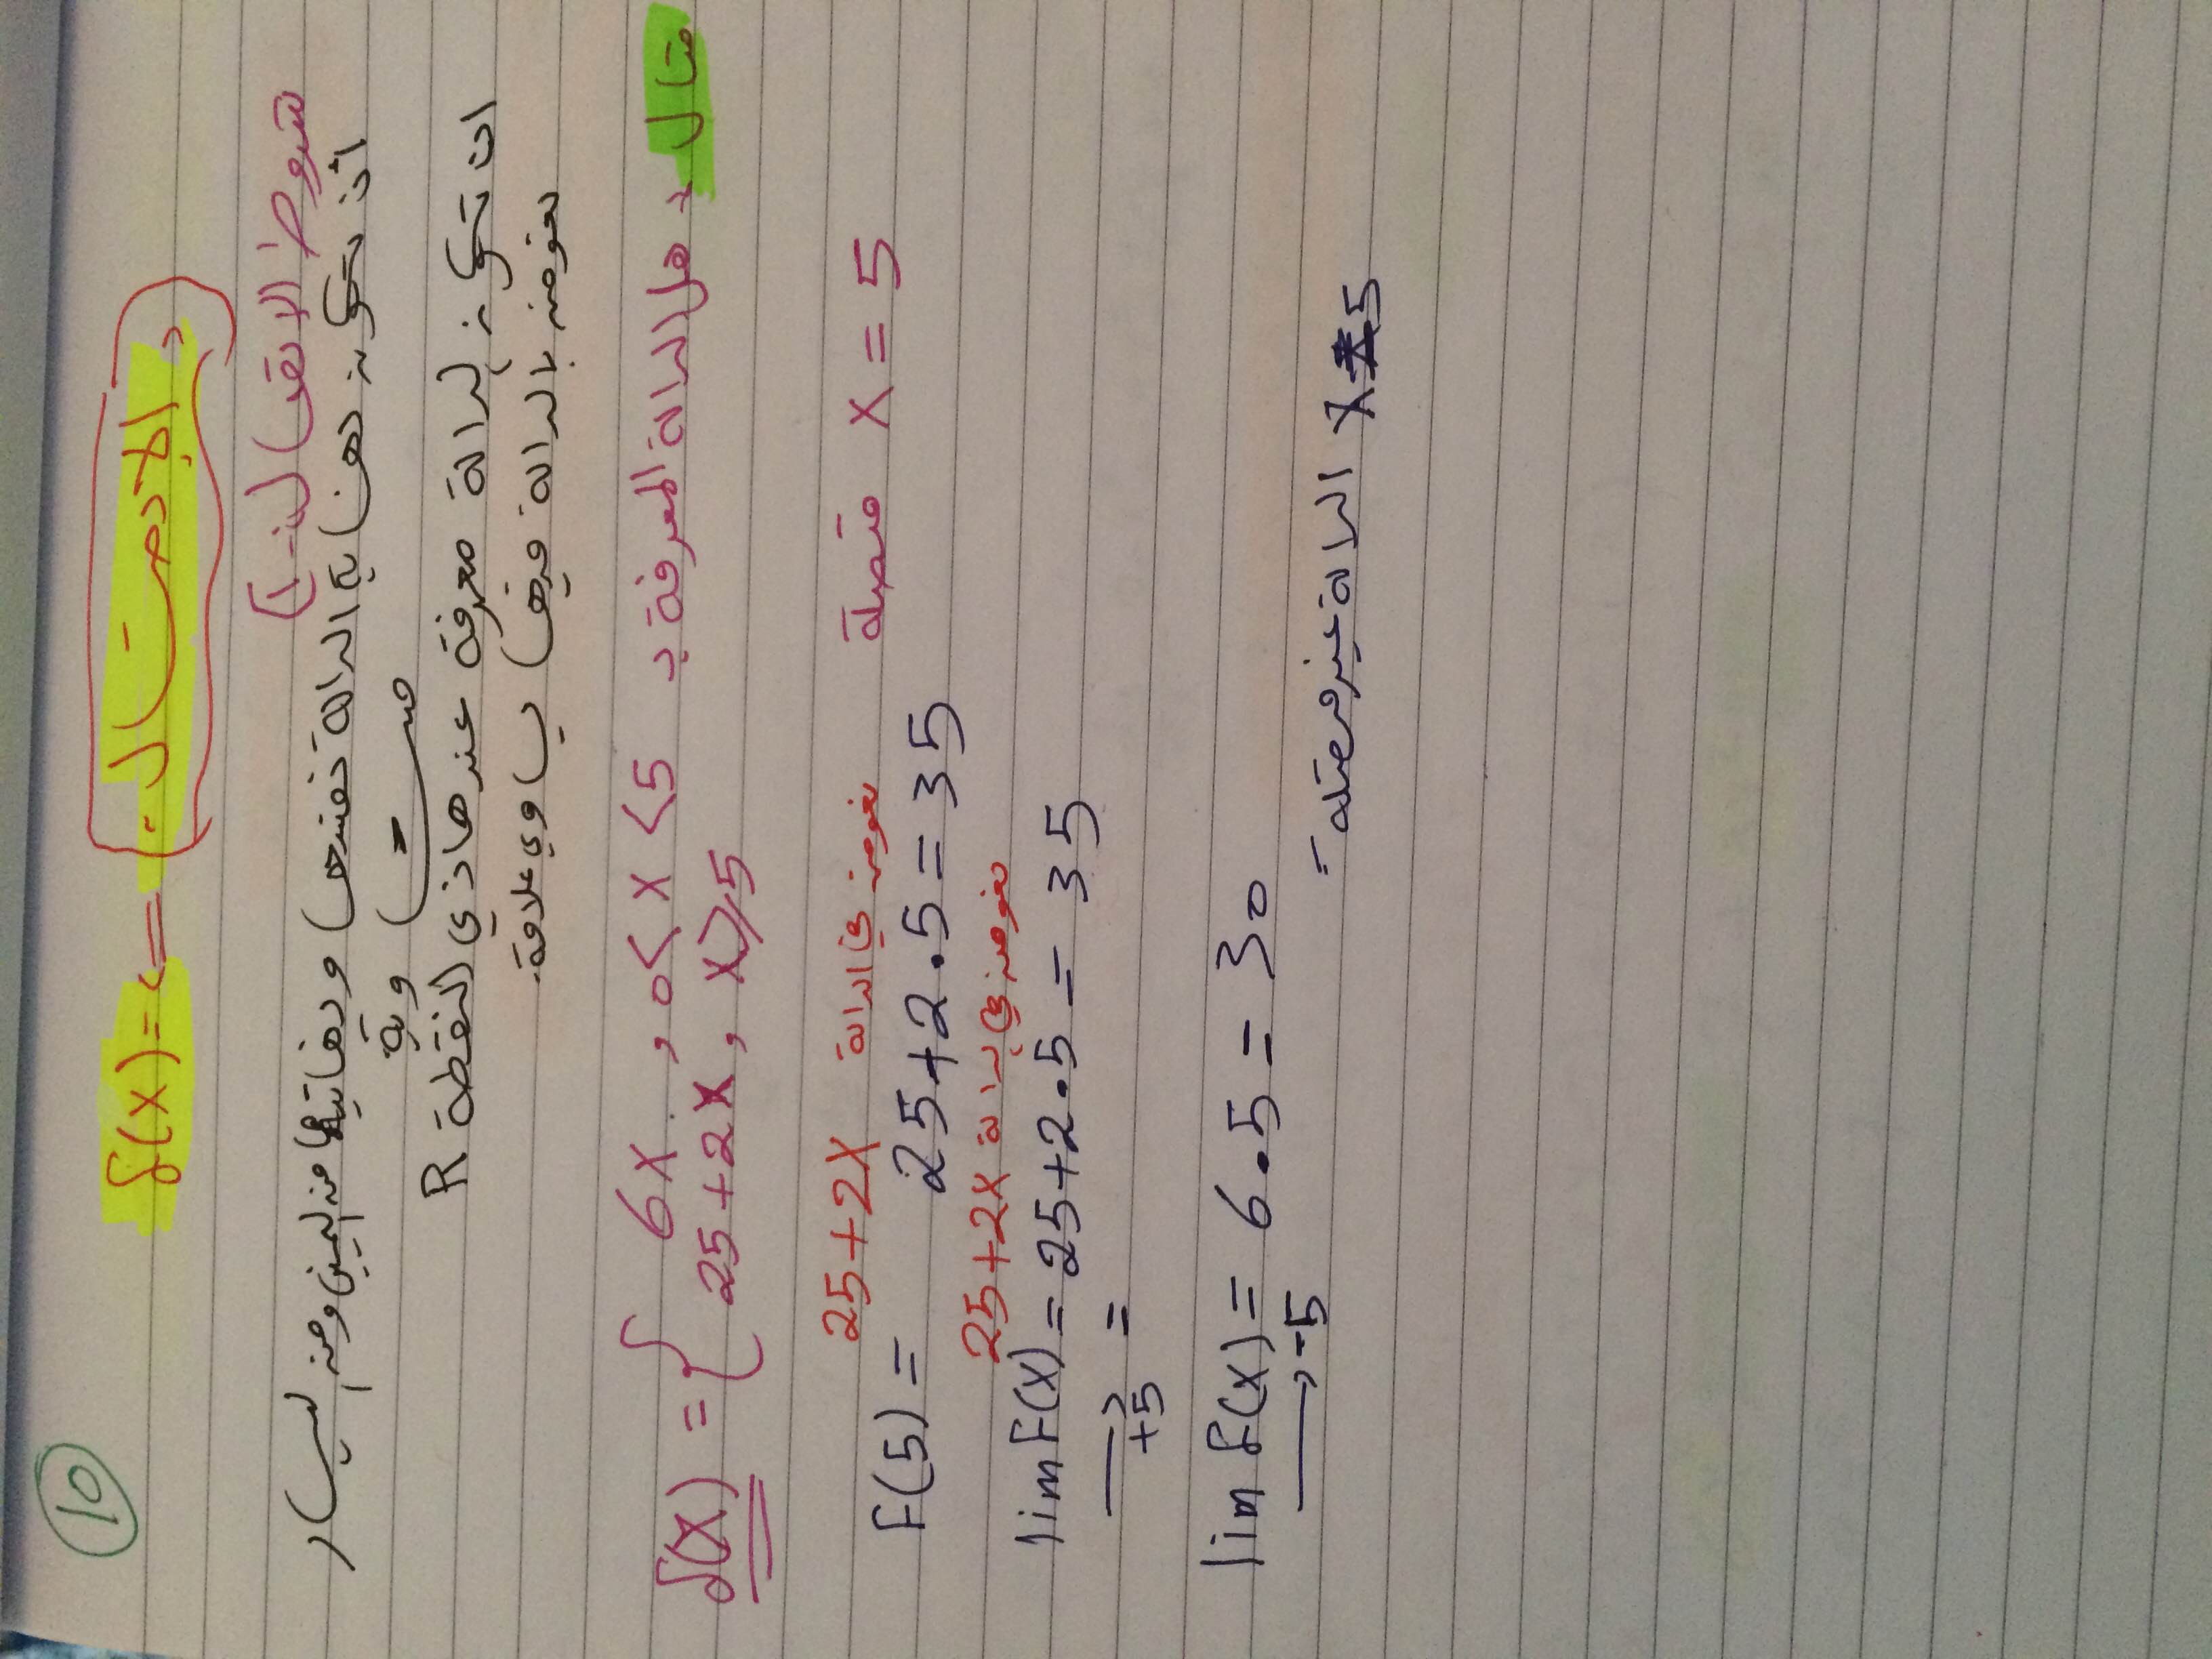 10
f(x) = <= الاتصال
شروط الاتصال
أن تكون نهاية الدالة نفسها ونهايتها من اليمين ومن اليسار
أن تكون الدالة معرفة عند هاذي النقطة R
نعوض بالدالة
مثال هل الدالة المعرفة بـ
f(x) = { 6x , 0< x <5
25+2x , x≥5
متصلة x = 5
25+2x نعوض في الدالة
F(5) = 25+2.5=35
25+2x نعوض في الدالة
lim F(x) = 25+2.5 = 35
→ +5 =
lim f(x) = 6.5 = 30
→ -5
= الدالة غير متصلة x=5